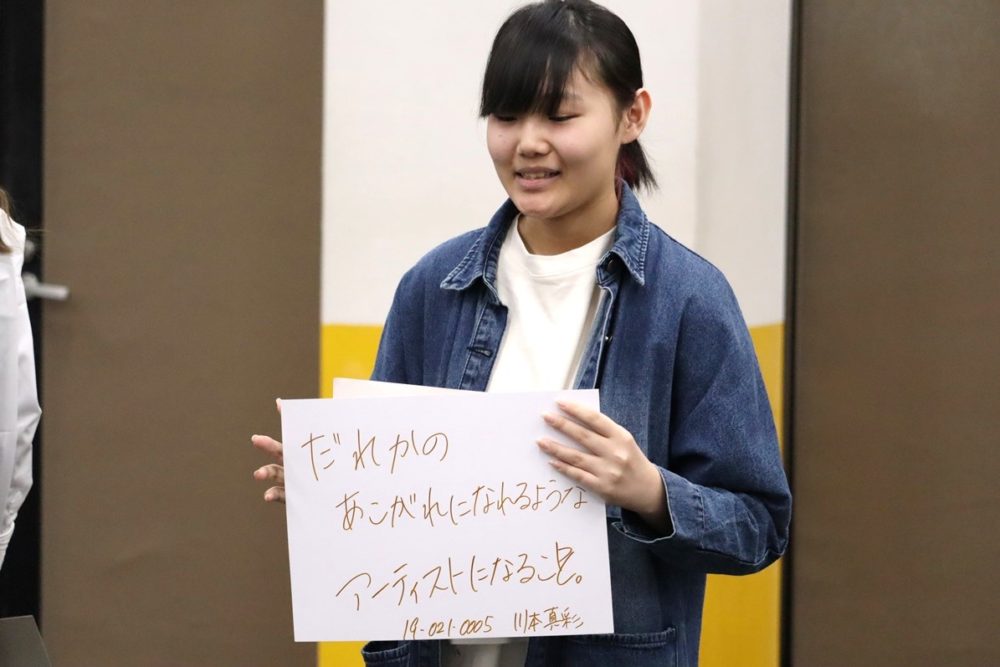 だれかの
あこがれになれるような
アーティストになること。
19-021-0005 川本真彩